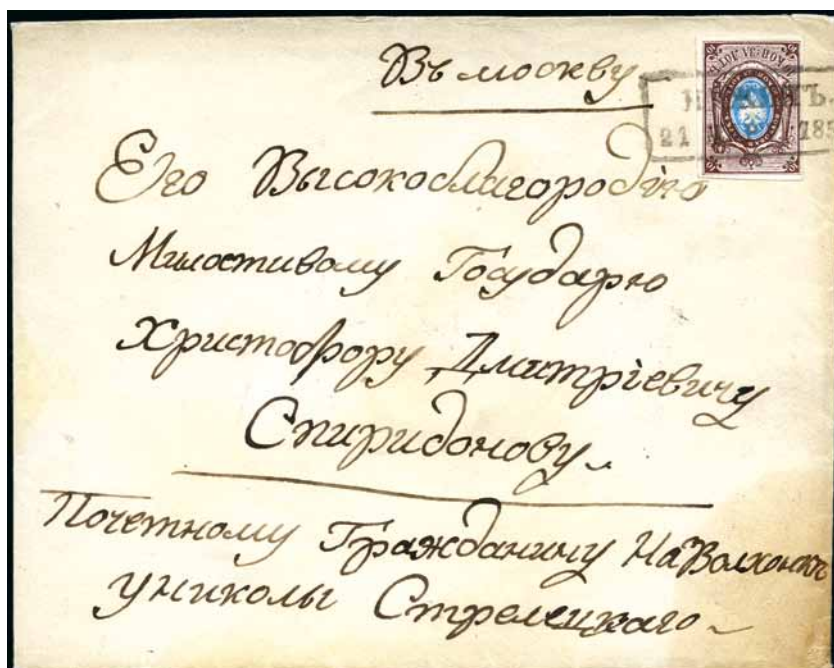 Въ москву
21 185
Его Высокоблагородію
Милостивому Государю
Христофору Дмитріевичу
Спиридонову.
Почетному Гражданину На Волхонкѣ
у николы Стрелецкаго